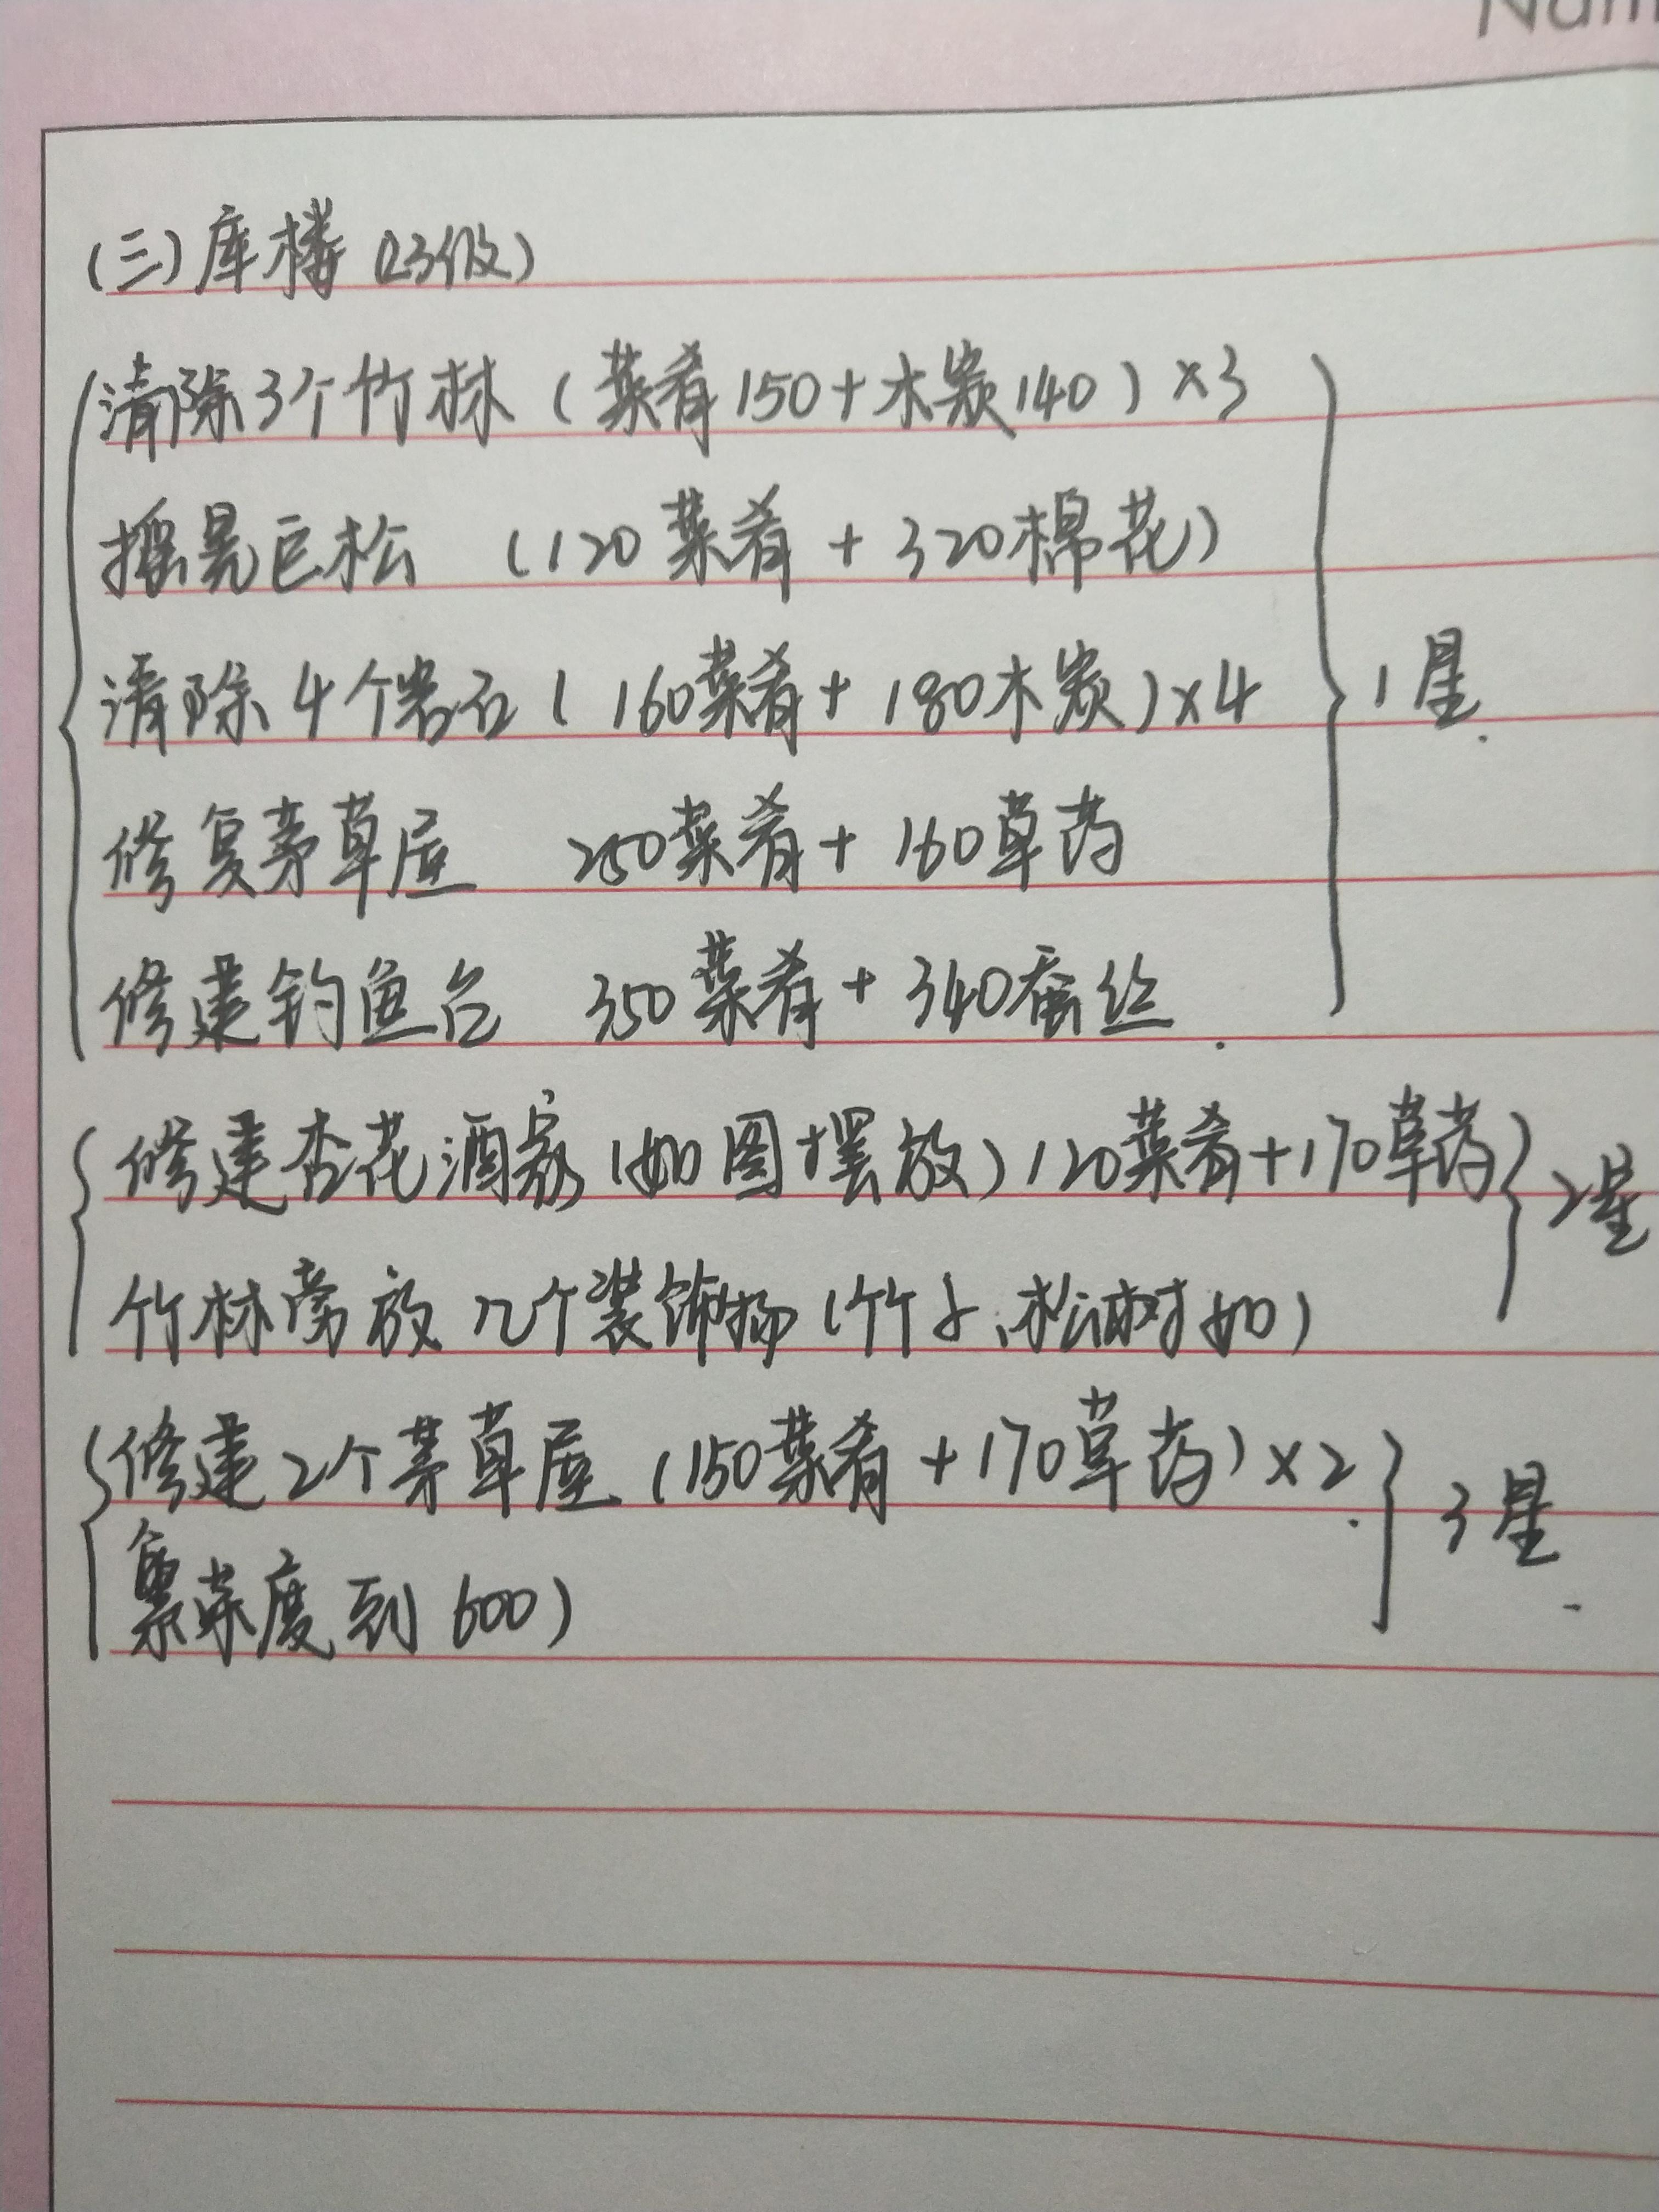 Nam
(三)库楼(23级)
清除3个竹林(菜肴150+木炭140)×3
摇晃巨松 (120菜肴+320棉花)
清除4个岩石(160菜肴+180木炭)×4
1星.
修复茅草屋 250菜肴+160草药
修建钓鱼台 350菜肴+340蚕丝.
修建杏花酒家(如图摆放)120菜肴+170草药
2星
竹林旁放几个装饰物(竹子、松树如)
修建2个茅草屋(150菜肴+170草药)×2.
3星.
繁荣度到600)